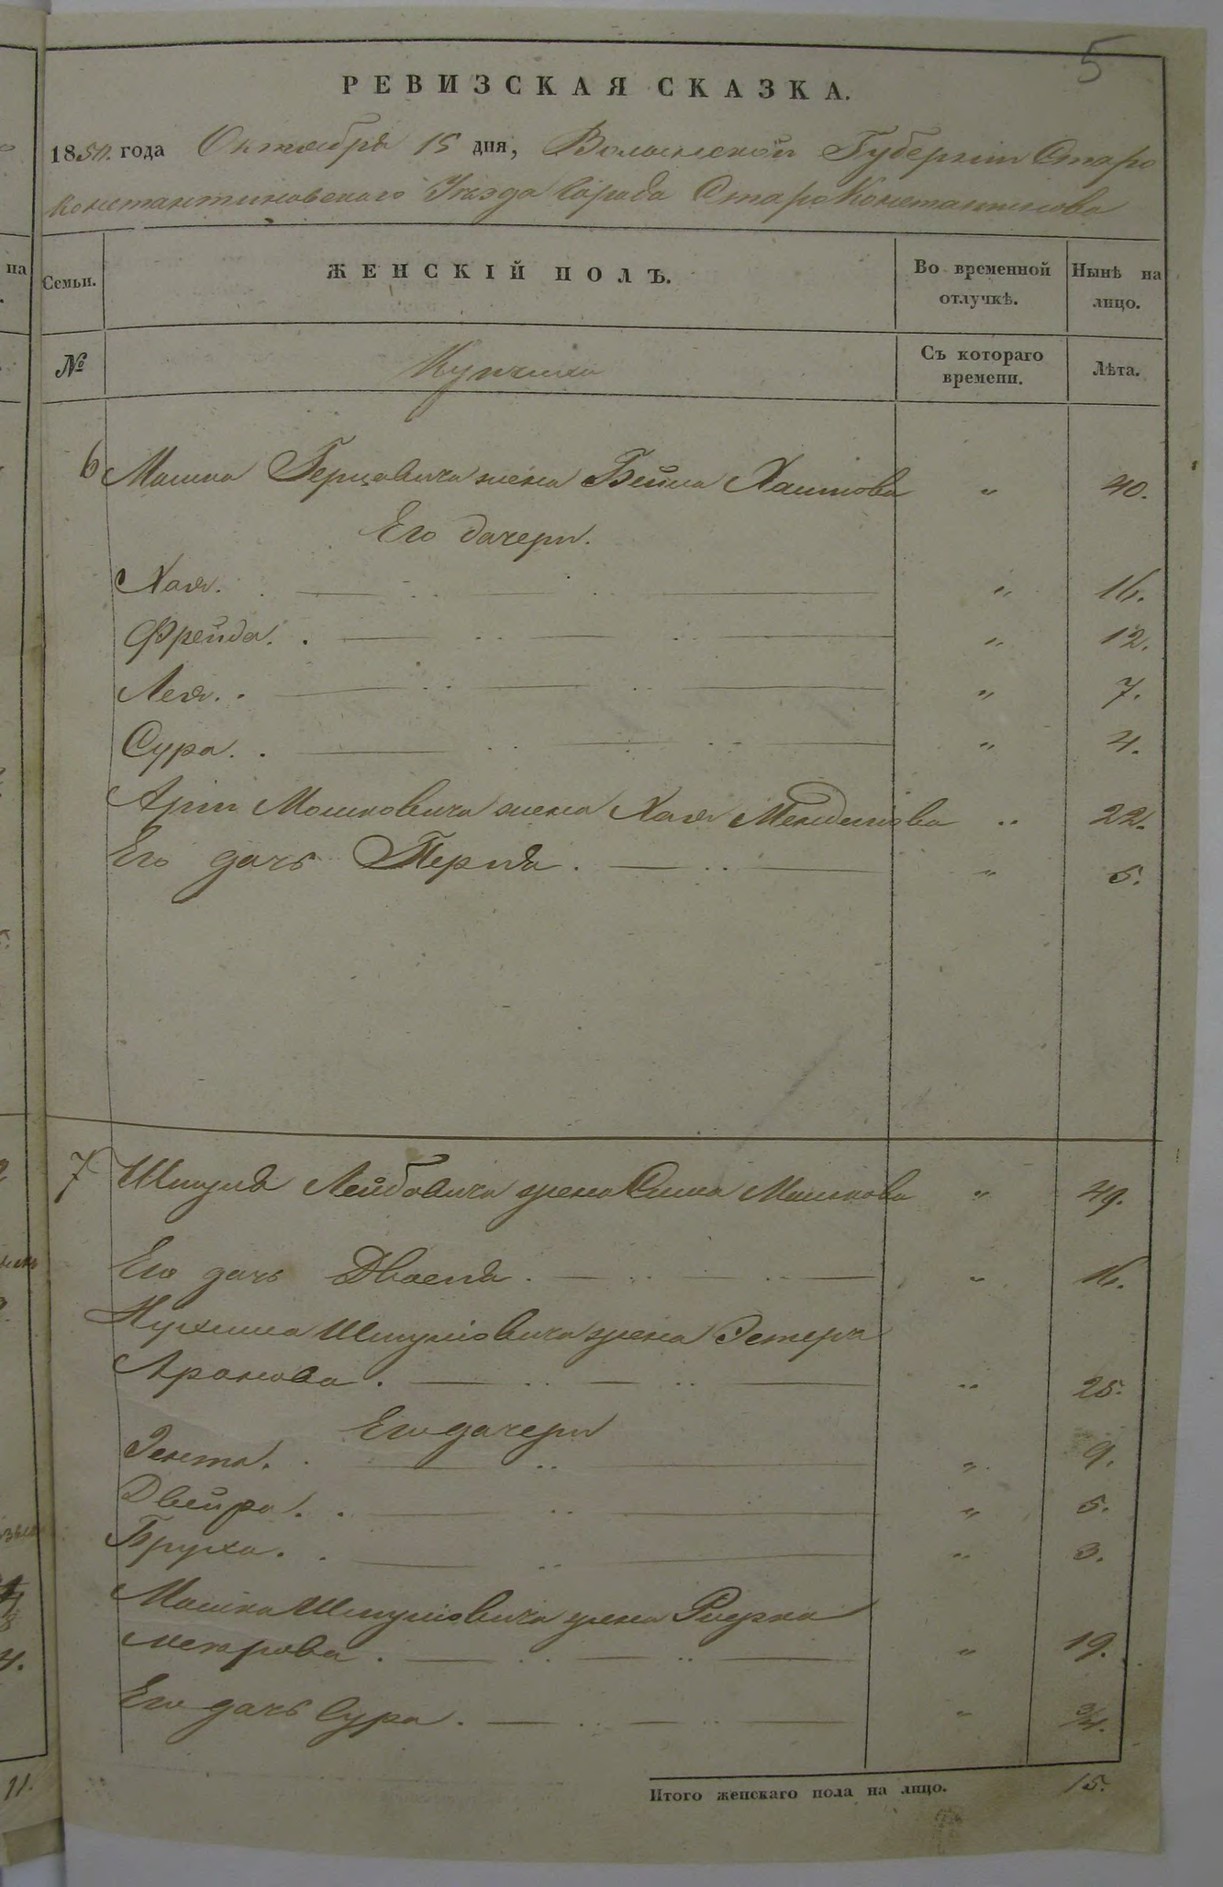 5
РЕВИЗСКАЯ СКАЗКА.
1850. года Октября 15 дня, Волынской Губерніи Старо
константиновскаго Уѣзда Города СтароКонстантинова
Семьи. ЖЕНСКІЙ ПОЛЪ. Во временной отлучкѣ. Нынѣ на лицо.
№ Купчихи Съ котораго времени. Лѣта.
6 Мошка Герцовича жена Бейла Хаимова " 40.
Его дочери.
Хая. " 16.
Фрейда. " 12.
Лея. " 7.
Сура. " 4.
Арііи Мошковича жена Хая Менделіова " 22.
Его дочь Перля. " 5.
7 Шмуля Лейбовича жена Сима Мошкова " 49.
Его дочь Двоеля. " 16.
Нухима Шмуліовича жена Эстеръ
Аронова. " 25.
Его дочери
Зента. " 9.
Двейра. " 5.
Бруха. " 3.
Мошка Шмуліовича жена
" 19.
Его дочь Сура. " 3/4.
Итого женскаго пола на лицо. 15.
11.